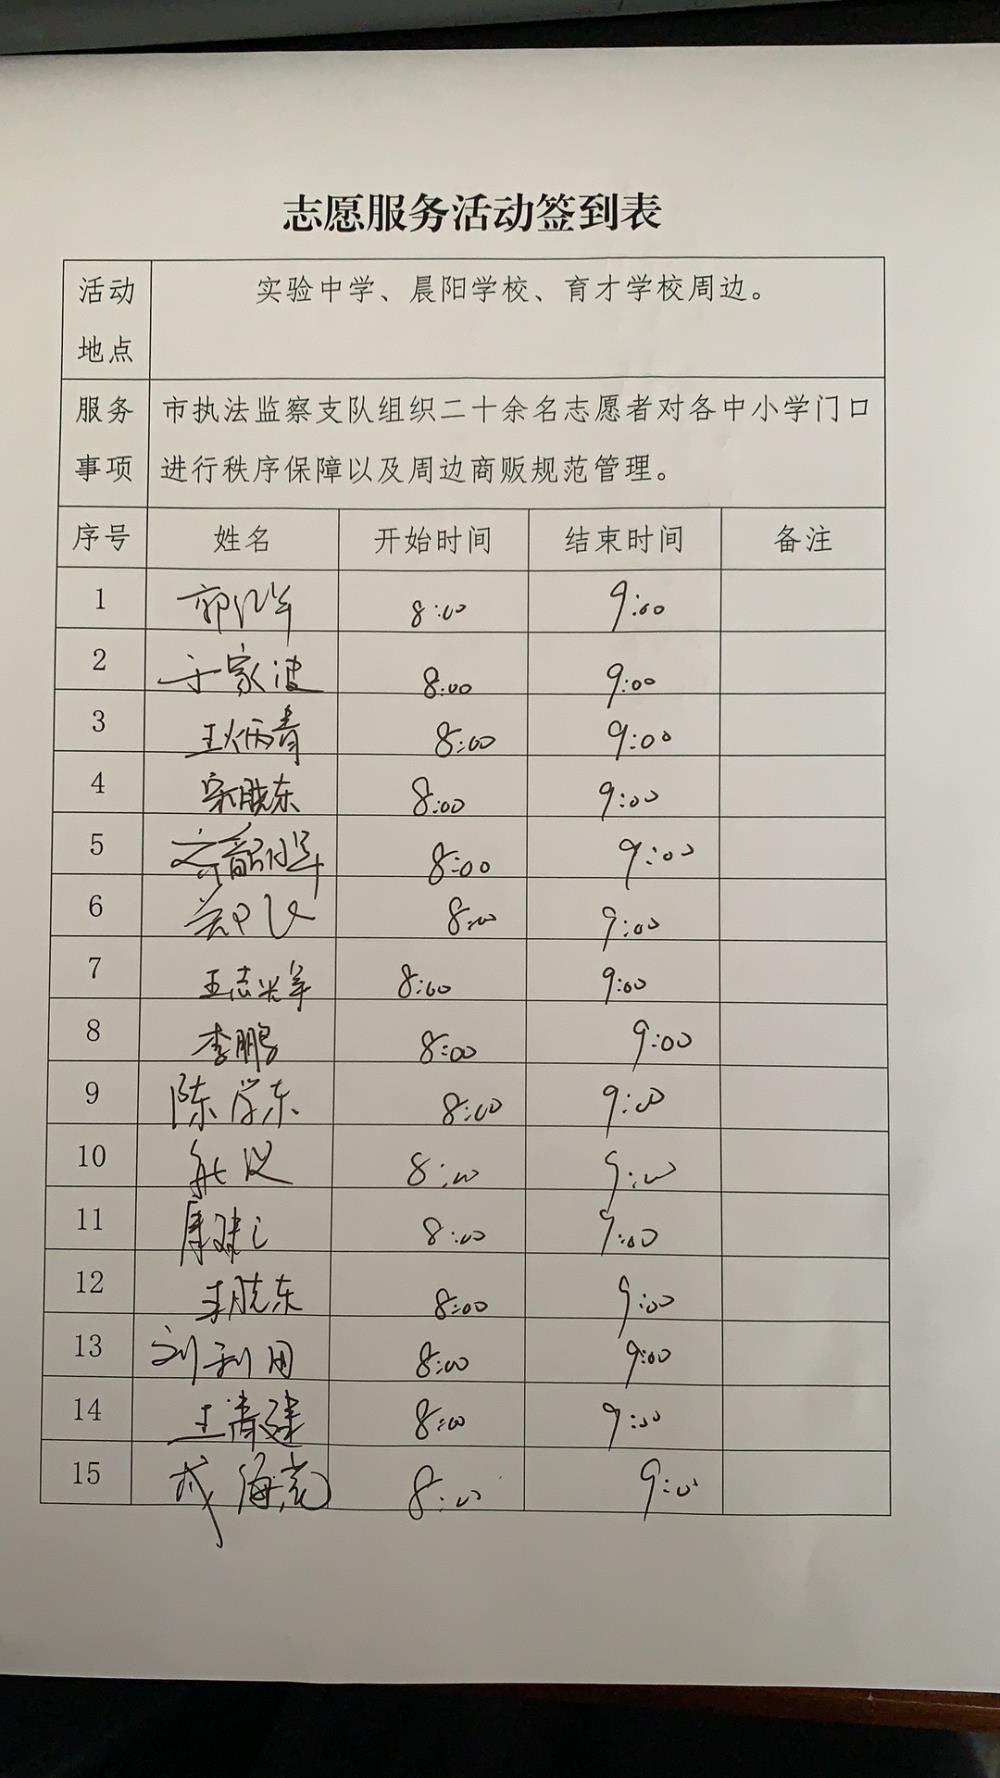 志愿服务活动签到表
活动地点 实验中学、晨阳学校、育才学校周边。
服务事项 市执法监察支队组织二十余名志愿者对各中小学门口
进行秩序保障以及周边商贩规范管理。
序号 姓名 开始时间 结束时间 备注
1 8:00 9:00
2 于家波 8:00 9:00
3 王炳青 8:00 9:00
4 宋晓东 8:00 9:00
5 8:00 9:00
6 8:00 9:00
7 王志光军 8:00 9:00
8 李鹏 8:00 9:00
9 陈学东 8:00 9:00
10 8:00 9:00
11 8:00 9:00
12 李晓东 8:00 9:00
13 刘利田 8:00 9:00
14 王清建 8:00 9:00
15 8:00 9:00